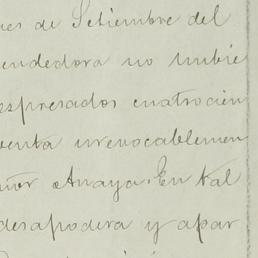 es de Setiembre del
endedora no hubie
espresados cuatrocien
venta irrevocablemen
eñor Anaya. En tal
desapodera y apar